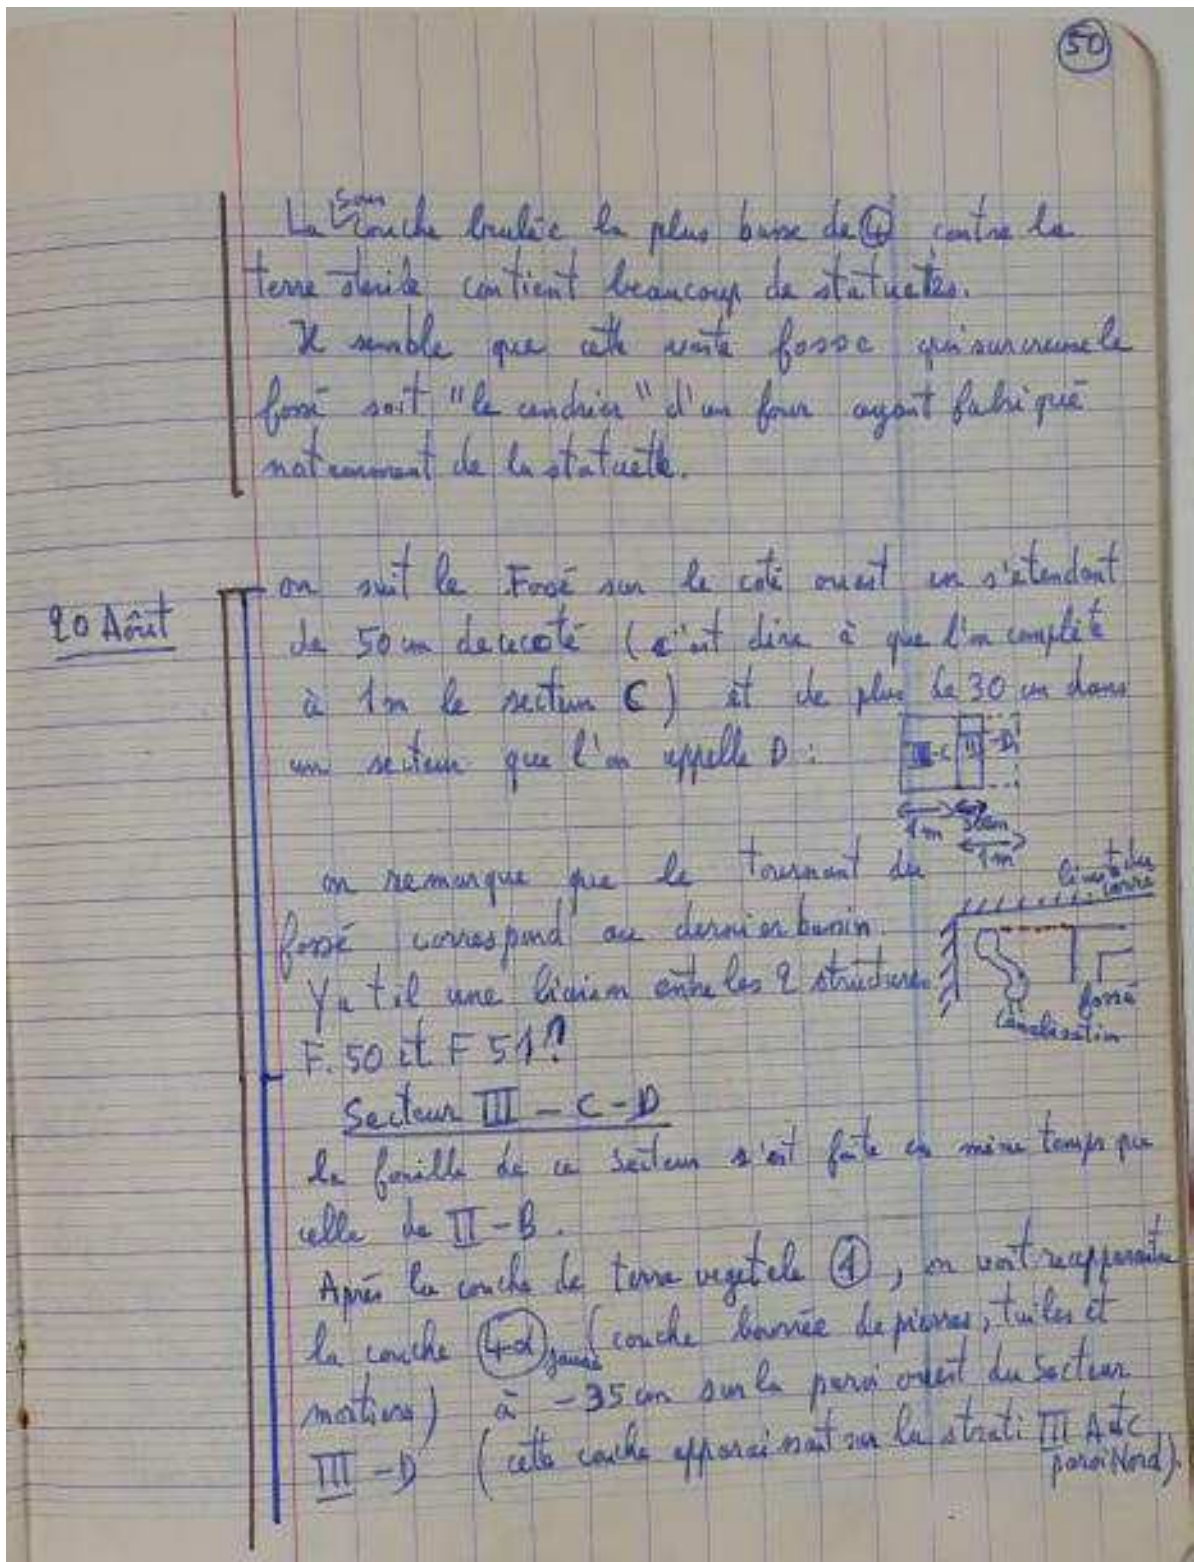 50
La sous couche brulée la plus basse de 4 contre la
terre sterile contient beaucoup de statuettes.
Il semble que cette vaste fosse qui surcreuse le
fossé soit "le cendrier" d'un four ayant fabriqué
notamment de la statuette.
20 Aôut
on suit le Fossé sur le coté ouest en s'étendant
de 50 cm de ce coté (c'est dire à que l'on complète
à 1m le secteur C) et de plus de 30 cm dans
un secteur que l'on appelle D :
III-C III -D
1m 30cm
1m
on remarque que le tournant du
fossé correspond au dernier bassin.
Y a t-il une liaison entre les 2 structures
F. 50 et F 51?
limite du
fossé
Canalisation
Secteur III - C - D
la fouille de ce secteur s'est faite en même temps que
celle de II - B.
Après la couche de terre vegetale 1, on voit reapparaitre
la couche 4d jaune (couche bourrée de pierres, tuiles et
mortiers) à -35 cm sur la paroi ouest du secteur
III - D (cette couche apparaissait sur la strati III A et C
paroi Nord).